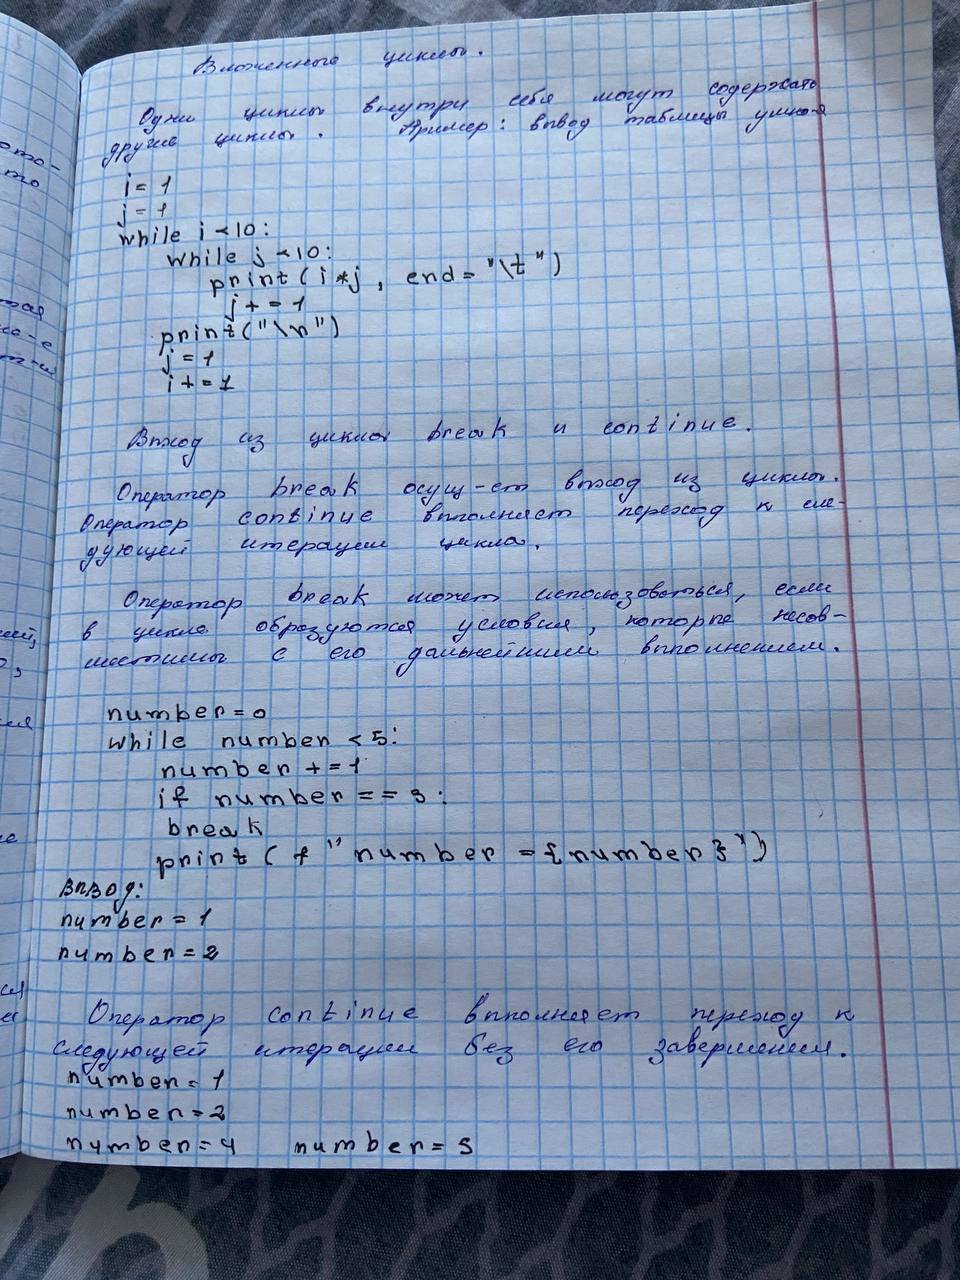 Вложенные циклы.
Одни циклы внутри себя могут содержать
другие циклы. Пример: вывод таблицы умно-я
i = 1
j = 1
while i < 10:
while j < 10:
print(i*j, end = "\t")
j += 1
print("\n")
j = 1
i += 1
Выход из цикла break и continue.
Оператор break осущ-ет выход из цикла.
Оператор continue выполняет переход к сле-
дующей итерации цикла.
Оператор break может использоваться, если
в цикле образуются условия, которые несов-
местимы с его дальнейшим выполнением.
number = 0
while number < 5:
number += 1
if number == 3:
break
print(f"number = {number}")
Вывод:
number = 1
number = 2
Оператор continue выполняет переход к
следующей итерации без его завершением.
number = 1
number = 2
number = 4 number = 5